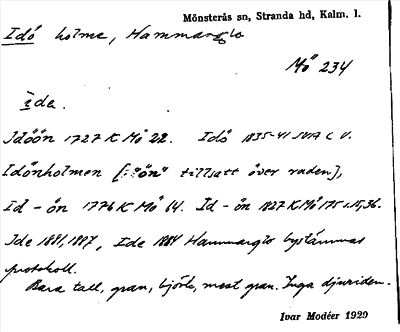 Mönsterås sn, Stranda hd, Kalm. l.
Idö holme, Hammarglo
Mö 234
ide.
Idöön 1727 K Mö 22. Idö 1835-41 C V.
Idönholmen [: "ön" tillsatt över raden],
Id-ön 1776 K Mö 64. Id-ön 1827 K Mö 175 s. 15, 36.
Ide 1881, 1887, Ide 1884 Hammarglo bystämmas
protokoll.
Bara tall, gran, björk, mest gran. Inga djuriden.
Ivar Modéer 1929